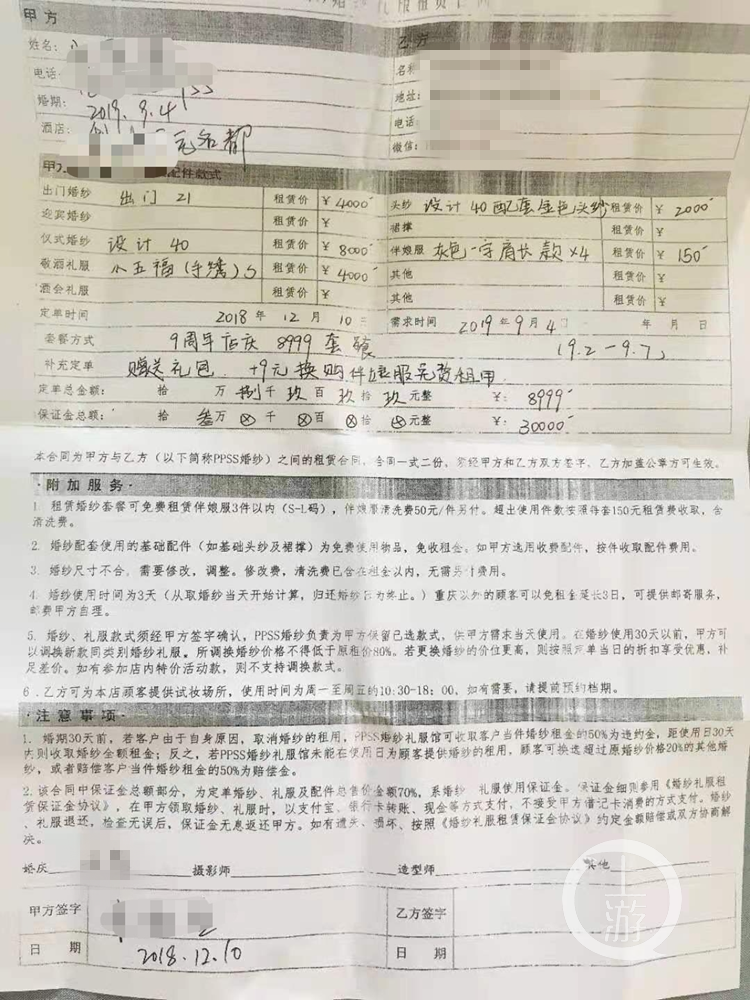 礼服租赁合同
甲方
乙方
姓名：
名称
电话：
地址：
婚期： 2019.9.4
电话
酒店： 名都
微信：
配件款式
出门婚纱 出门 21 租赁价 ¥ 4000
头纱 设计40配套金色头纱 租赁价 ¥ 2000
迎宾婚纱 租赁价 ¥
裙撑 租赁价 ¥
仪式婚纱 设计 40 租赁价 ¥ 8000
伴娘服 灰色一字肩长款×4 租赁价 ¥ 150
敬酒礼服 小五福(手绣)S 租赁价 ¥ 4000
其他 租赁价 ¥
酒会礼服 租赁价 ¥
其他 租赁价 ¥
定单时间 2018 年 12 月 10 日
需求时间 2019 年 9 月 4 日 年 月 日
套餐方式 9周年店庆 8999 套餐
19.2-9.7
补充定单 赠送礼包 +9元换购伴娘服免费租用
定单总金额： 拾 万 捌 千 玖 百 玖 拾 玖 元整 ¥： 8999
保证金总额： 拾 叁 万 ⊗ 千 ⊗ 百 ⊗ 拾 ⊗ 元整 ¥： 30000
本合同为甲方与乙方（以下简称PPSS婚纱）之间的租赁合同，合同一式二份，须经甲方和乙方双方签字，乙方加盖公章方可生效。
·附加服务·
1．租赁婚纱套餐可免费租赁伴娘服3件以内（S-L码），伴娘服清洗费50元/件另付。超出使用件数按照每套150元租赁费收取，含
清洗费。
2．婚纱配套使用的基础配件（如基础头纱及裙撑）为免费使用物品，免收租金。如甲方选用收费配件，按件收取配件费用。
3．婚纱尺寸不合，需要修改，调整。修改费，清洗费已含在租金以内，无需另付费用。
4．婚纱使用时间为3天（从取婚纱当天开始计算，归还婚纱日为终止。）重庆以外的顾客可以免租金延长3日，可提供邮寄服务，
邮费甲方自理。
5．婚纱、礼服款式须经甲方签字确认，PPSS婚纱负责为甲方保留已选款式，供甲方需求当天使用。在婚纱使用30天以前，甲方可
以调换新款同类别婚纱礼服。所调换婚纱价格不得低于原租价80%。若更换婚纱的价位更高，则按照定单当日的折扣享受优惠，补
足差价。如有参加店内特价活动款，则不支持调换款式。
6．乙方可为本店顾客提供试妆场所，使用时间为周一至周五的10:30-18：00，如有需要，请提前预约档期。
·注意事项·
1．婚期30天前，若客户由于自身原因，取消婚纱的租用，PPSS婚纱礼服馆可收取客户当件婚纱租金的50%为违约金，距使用日30天
内则收取婚纱全额租金；反之，若PPSS婚纱礼服馆未能在使用日为顾客提供婚纱的租用，顾客可换选超过原婚纱价格20%的其他婚
纱，或者赔偿客户当件婚纱租金的50%为赔偿金。
2．该合同中保证金总额部分，为定单婚纱、礼服及配件总售价金额70%，系婚纱 礼服使用保证金。保证金细则参用《婚纱礼服租
赁保证金协议》，在甲方领取婚纱、礼服时，以支付宝、银行卡转账、现金等方式支付，不接受甲方借记卡消费的方式支付。婚纱
、礼服退还，检查无误后，保证金无息返还甲方。如有遗失、损坏、按照《婚纱礼服租赁保证金协议》约定金额赔偿或双方协商解
决。
婚庆 摄影师 造型师 其他
甲方签字
乙方签字
日 期 2018.12.10
日 期
上游